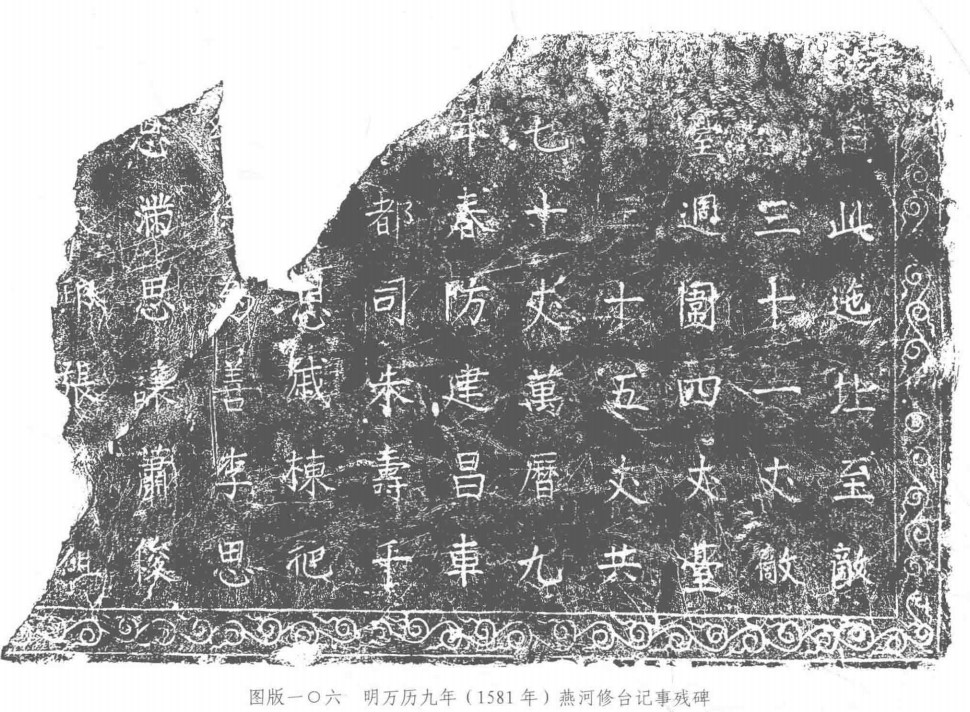 此迤北至敵
三十一丈敵
臺週圍四丈臺
三十五丈共
七十丈萬曆九
年春防建昌車
都司朱壽千
恩戚棟
善李思
恩滿思諫蕭俊
張
图版一〇六 明万历九年（1581年）燕河修台记事残碑